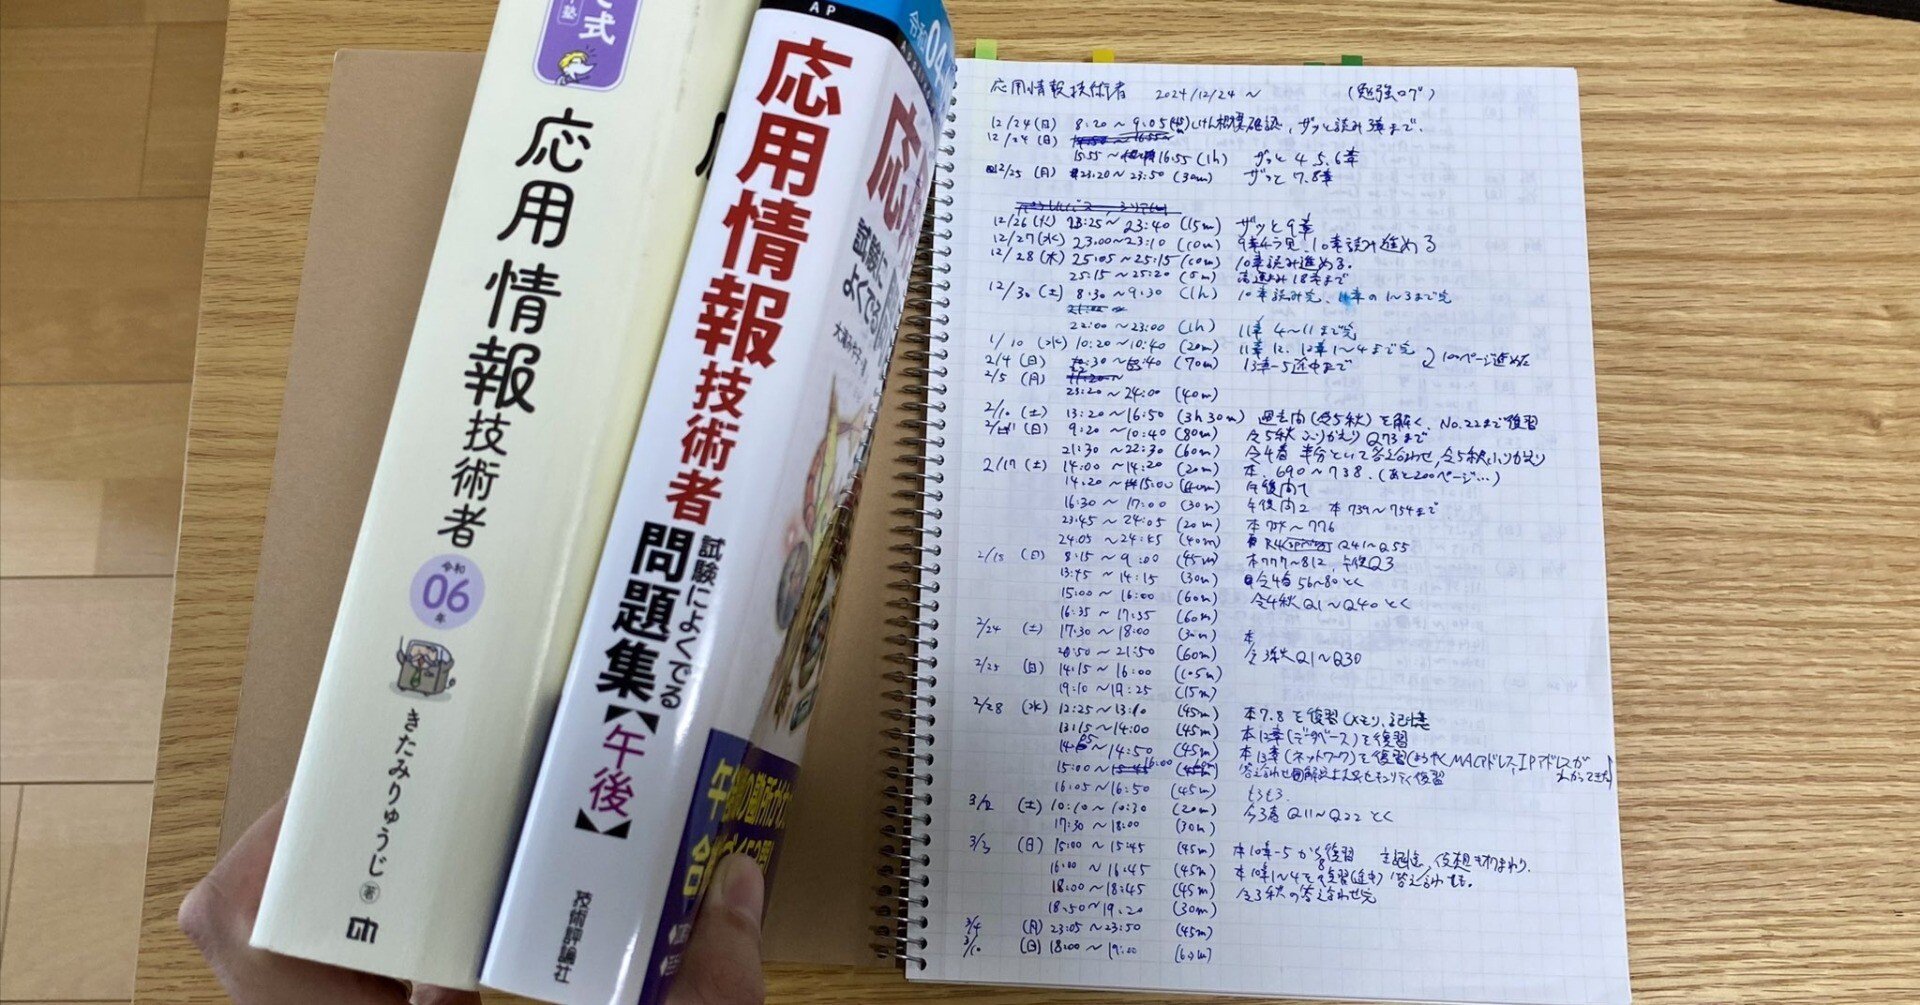 式
塾
応用情報技術者
令和
06
年
きたみりゅうじ 著
AP
応用情報技術者
試験によくでる
問題集【午後】
技術評論社
令和04
試験に
よくでる
応用情報技術者 2024/12/24 ~ (勉強ログ)
12/24(日) 8:20 ~ 9:05 概要確認、ザッと読み3章まで.
12/24(日)
15:55 ~ 16:55 (1h) ザっと 4.5.6章
12/25 (月) 23:20 ~ 23:50 (30m) ザっと 7.8章
12/26(火) 23:25 ~ 23:40 (15m) ザッと9章
12/27(水) 23:00~23:10 (10m) 10章読み進める
12/28(木) 25:05 ~ 25:15 (10m) 10章読み進める.
25:15 ~ 25:20 (5m) 18章まで
12/30 (土) 8:30 ~ 9:30 (1h) 10章読み完、11章の1~3まで完
22:00 ~ 23:00 (1h) 11章 4~11まで完
1/10 (水) 10:20 ~ 10:40 (20m) 11章 12. 12章1~4まで完
100ページ進めた
2/4 (日) (70m) 13章-5途中まで
2/5 (月)
23:20 ~ 24:00 (40m)
2/10 (土) 13:20 ~ 16:50 (3h30m) 過去問(令5秋)を解く、No.22まで復習
(日) 9:20 ~ 10:40 (80m) 令5秋 ふりかえり Q73まで
21:30 ~ 22:30 (60m) 令4春 半分といて答え合わせ,令5秋ふりかえり
2/17 (土) 14:00 ~ 14:20 (20m) 本 690~738.(あと200ページ…)
14:20 ~ 15:00 (40m) 午後問1
16:30 ~ 17:00 (30m) 午後問2 本 739~754まで
23:45 ~ 24:05 (20m) 本 754~776
24:05 ~ 24:45 (40m) Q41~Q55
2/18 (日) 8:15 ~ 9:00 (45m) 本777~812、午後Q3
13:45 ~ 14:15 (30m) 令4春 56~80とく
15:00 ~ 16:00 (60m) 令4秋 Q1~Q40とく
16:35 ~ 17:35 (60m)
2/24 (土) 17:30 ~ 18:00 (30m) 本
20:50 ~ 21:50 (60m) 令3秋Q1~Q30
2/25 (日) 14:15 ~ 16:00 (105m)
19:10 ~ 19:25 (15m)
2/28 (水) 12:25 ~ 13:10 (45m) 本7.8を復習(メモリ、記憶
13:15 ~ 14:00 (45m) 本12章(データベース)を復習
14:05 ~ 14:50 (45m) 本13章(ネットワーク)を復習(ようやくMACアドレス,IPアドレスが
わかってきた)
15:00 ~ 16:00
16:05 ~ 16:50 (45m) もろもろ.
3/2 (土) 10:10 ~ 10:30 (20m) 令3春 Q11~Q22 とく
17:30 ~ 18:00 (30m)
3/3 (日) 15:00 ~ 15:45 (45m) 本10章-5から復習 主記憶、仮想メモリまわり.
16:00 ~ 16:45 (45m) 本10章1~4を復習(途中)
18:00 ~ 18:45 (45m) 令3秋の答え合わせ完
18:50 ~ 19:20 (30m)
3/4 (月) 23:05 ~ 23:50 (45m)
3/10 (日) 18:00 ~ 19:00 (60m)